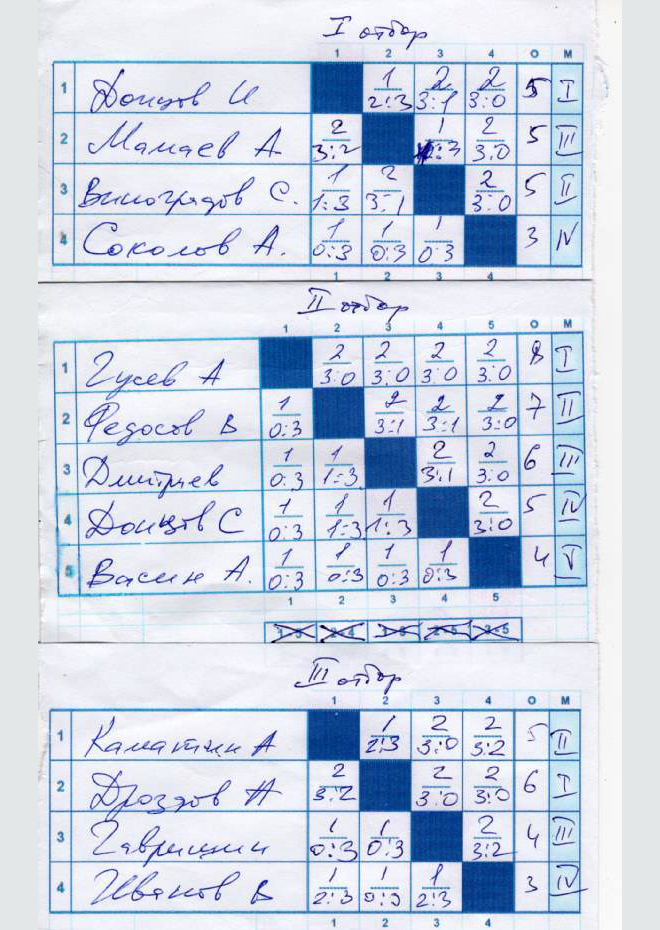 I отбор
1 2 3 4 О М
1 Донцов И 1 2:3 2 3:1 2 3:0 5 I
2 Мамаев А 2 3:2 1 :3 2 3:0 5 III
3 Виноградов С. 1 1:3 2 3:1 2 3:0 5 II
4 Соколов А. 1 0:3 1 0:3 1 0:3 3 IV
1 2 4
II отбор
1 2 3 4 5 О М
1 Гусев А 2 3:0 2 3:0 2 3:0 2 3:0 8 I
2 Федосов В 1 0:3 2 3:1 2 3:1 2 3:0 7 II
3 Дмитриев 1 0:3 1 1:3 2 3:1 2 3:0 6 III
4 Донцов С 1 0:3 1 1:3 1 1:3 2 3:0 5 IV
5 Васин А. 1 0:3 1 0:3 1 0:3 1 0:3 4 V
1 2 3 4 5
III отбор
1 2 3 4 О М
1 Каматкин А 1 2:3 2 3:0 2 3:2 5 II
2 Дроздов Н 2 3:2 2 3:0 2 3:0 6 I
3 Гаврицин 1 0:3 1 0:3 2 3:2 4 III
4 Иванов В 1 2:3 1 0:3 1 2:3 3 IV
1 2 4